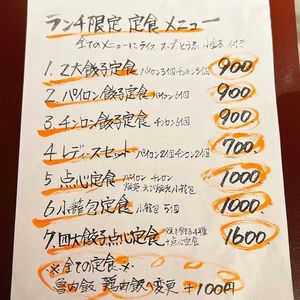 ランチ限定 定食メニュー
全てのメニューにライス スープ とうふ 小金子 付き
1. 2大餃子定食 パイロン3個 チンロン3個 900
2. パイロン餃子定食 パイロン6個 900
3. チンロン餃子定食 チンロン6個 900
4. レディースセット パイロン2個 チンロン2個 700
5. 点心定食 パイロン チンロン 小籠包 1000
6. 小籠包定食 小籠包 5個 1000
7. 四大餃子点心定食 4種 +点心定食 1600
※全ての定食※
鶏肉飯 変更 +100円